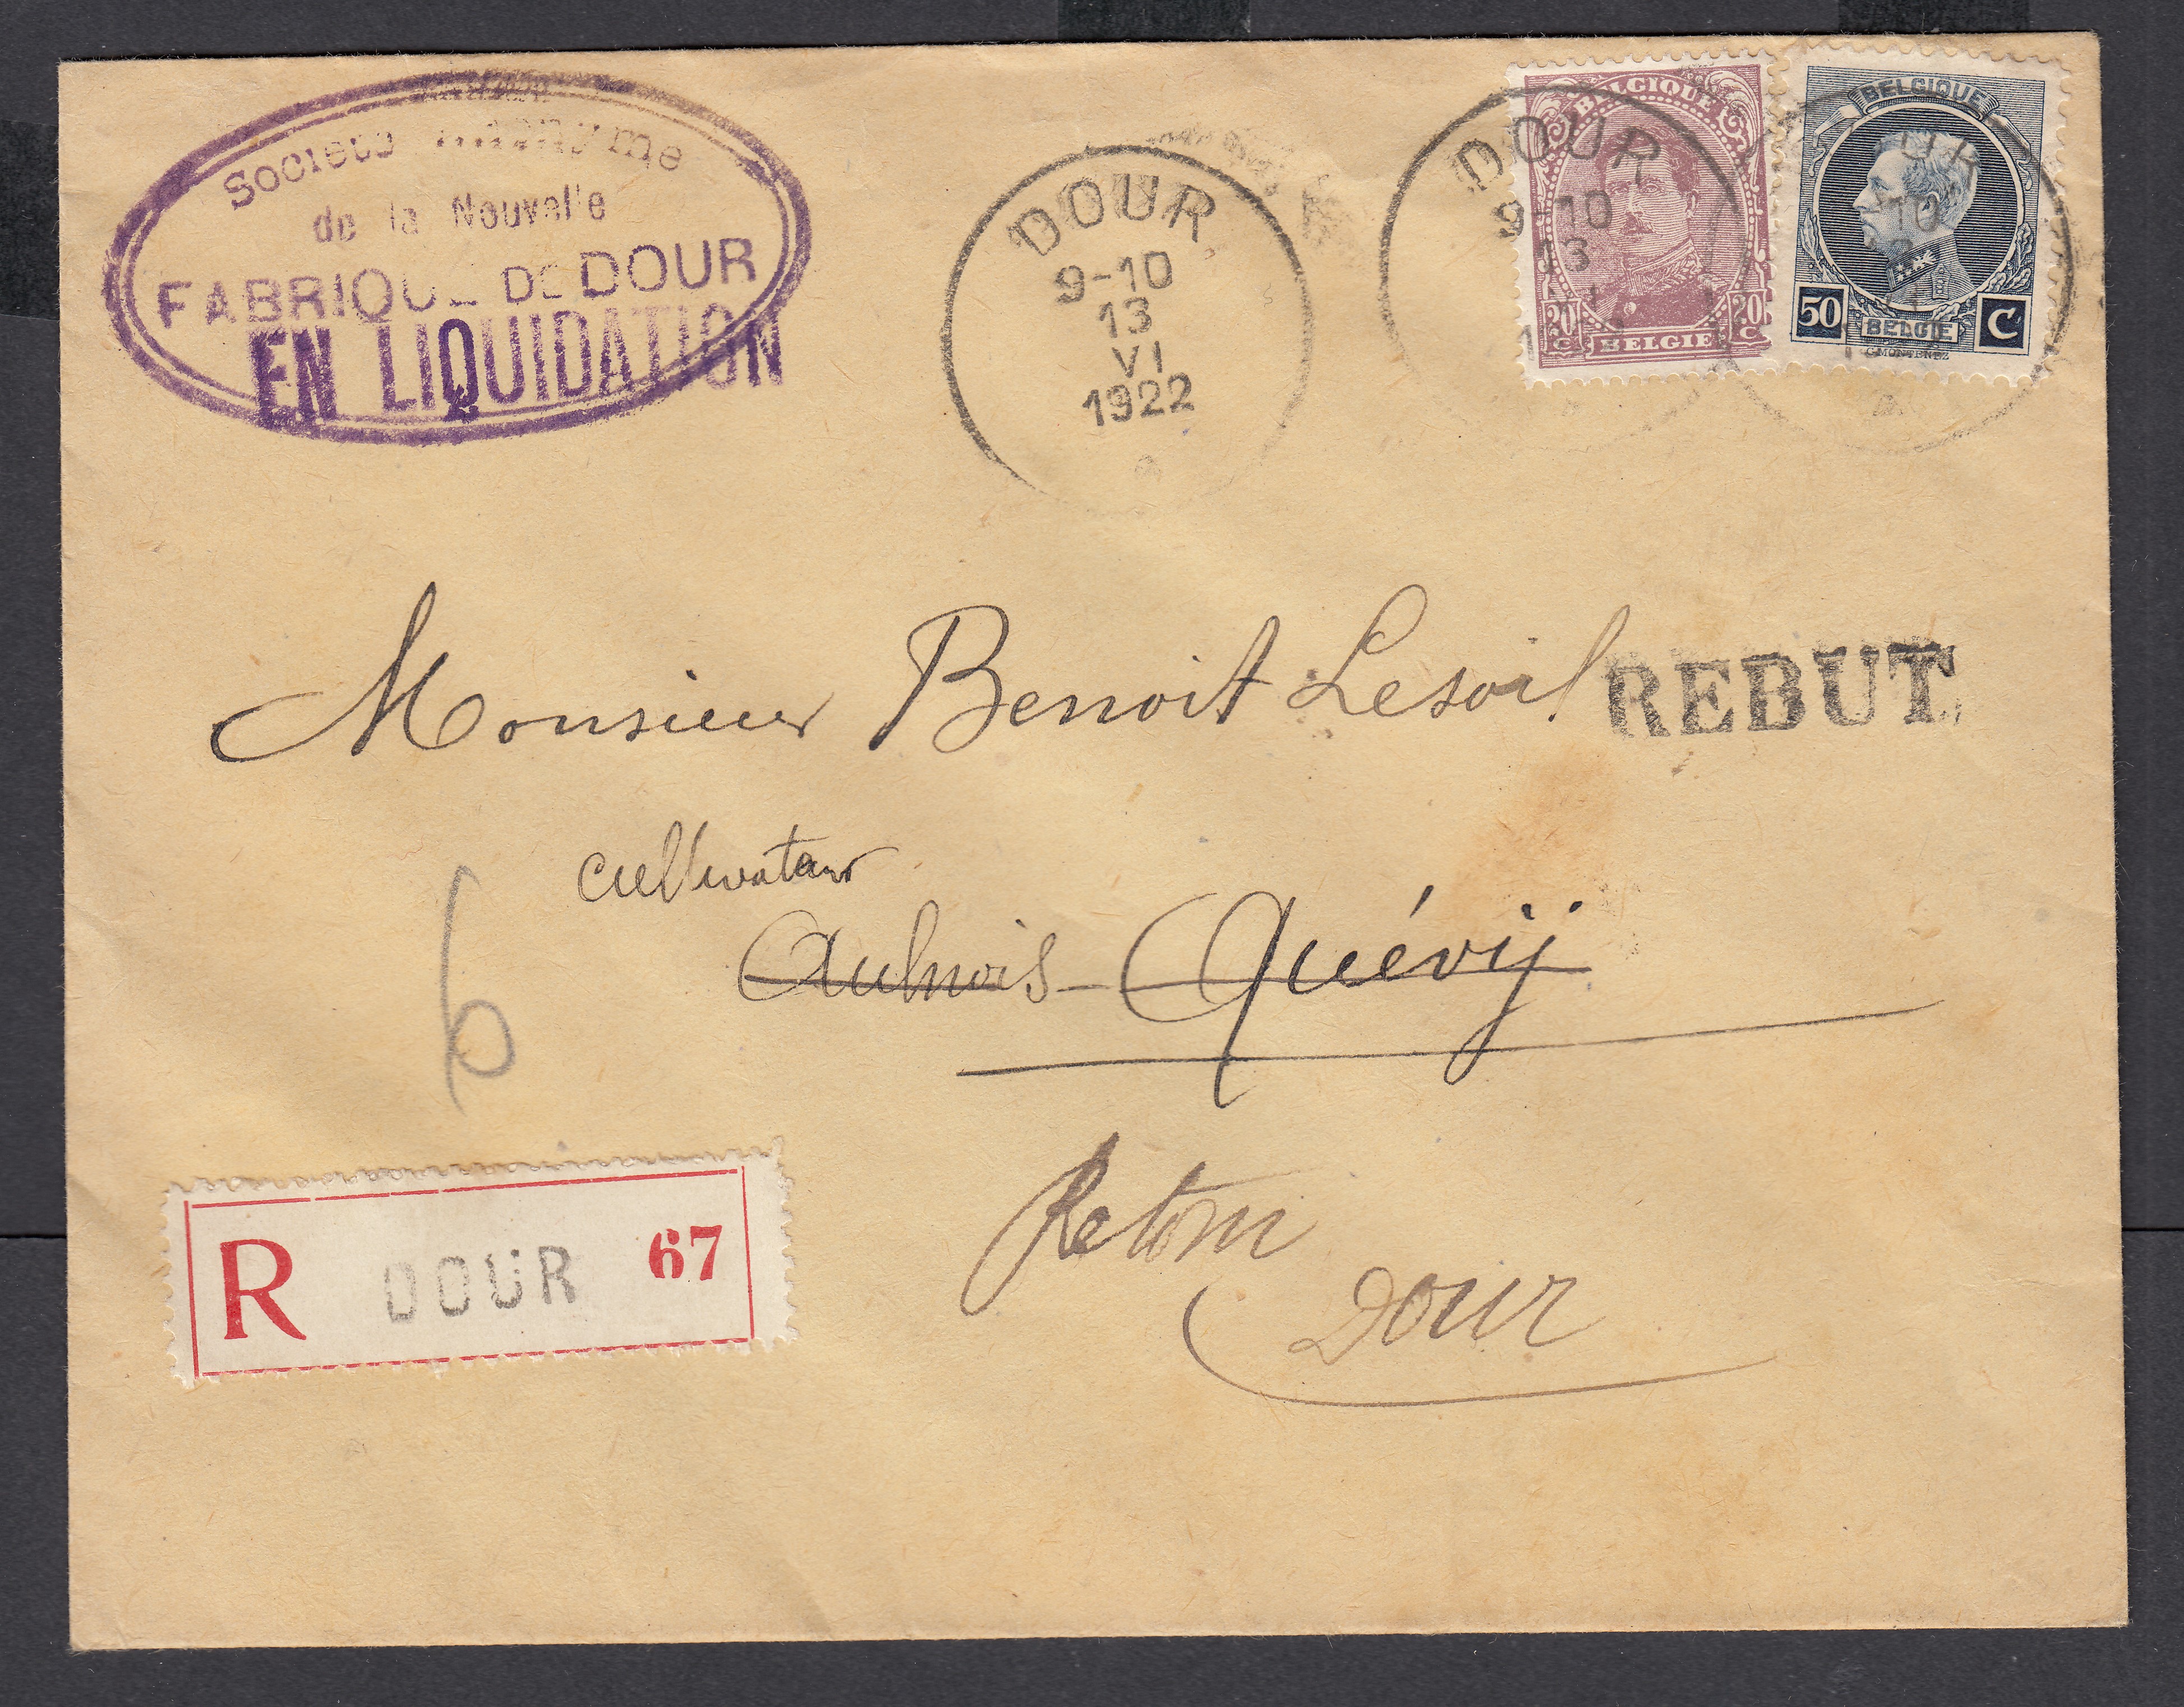 Société Anonyme
de la Nouvelle
FABRIQUE DE DOUR
EN LIQUIDATION
DOUR
9-10
13
VI
1922
DOUR
9-10
13
BELGIQUE
20 20
C
BELGIE
BELGIQUE
50 C
BELGIE
C. MONTENEZ
Monsieur Benoit Lesoil
REBUT
cultivateur
Aulnois-Quévij
6
Retour
Dour
R DOUR 67